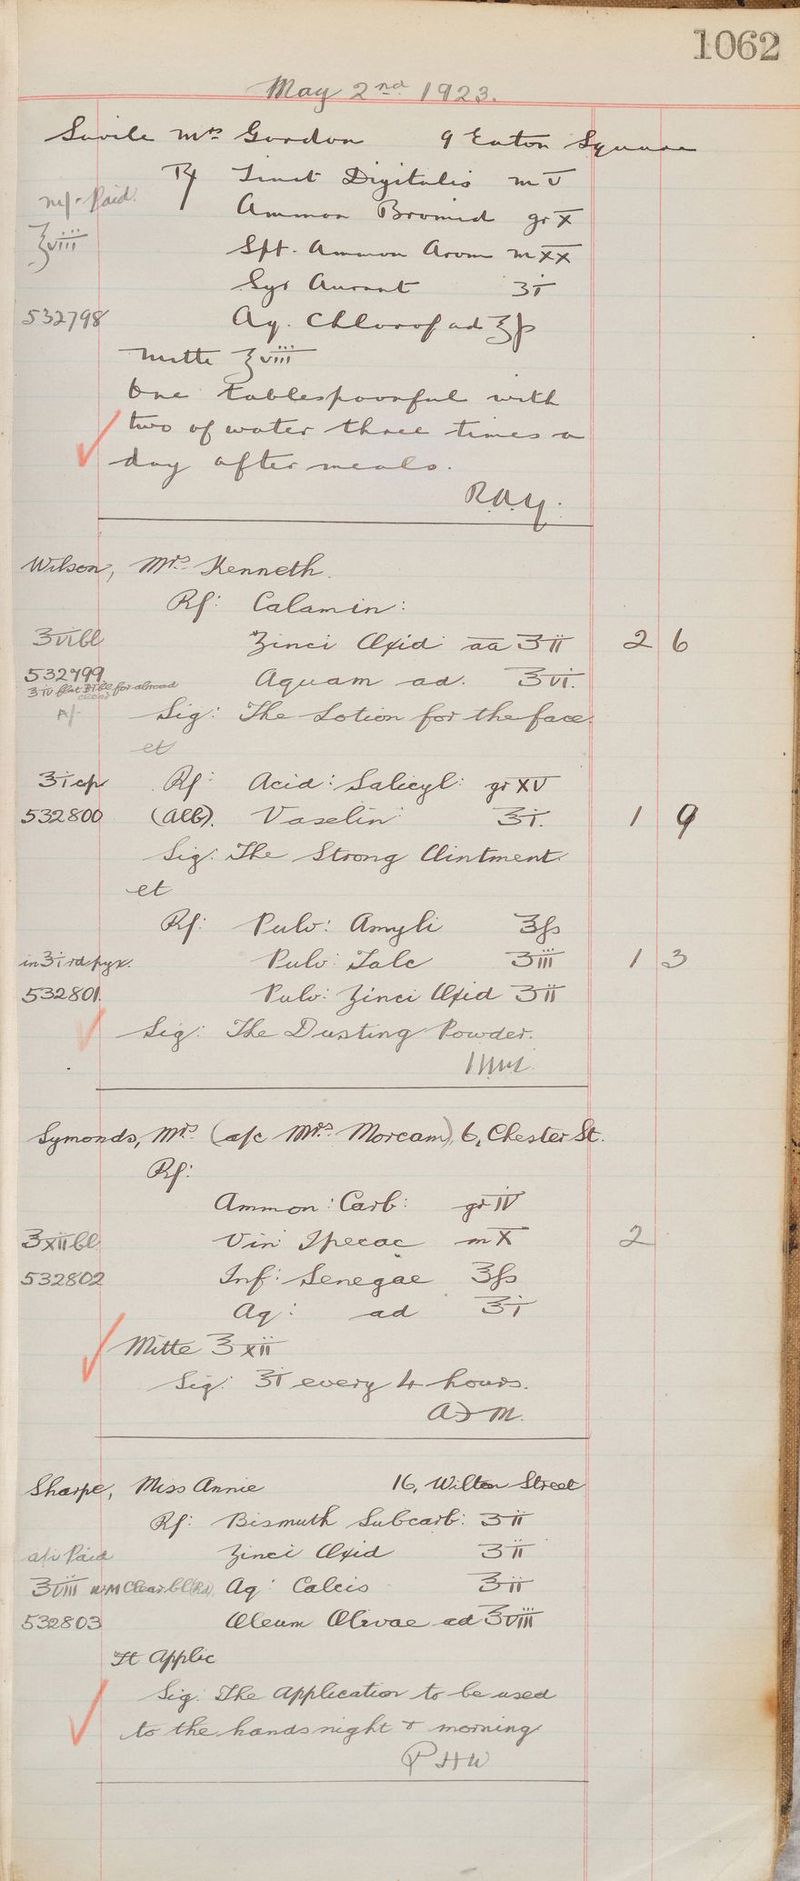 1062
May 2nd 1923.
Savile Mrs Gordon 9 Eaton Square
Rx Tinct Digitalis m v
Paid. Ammon Bromid gr x
℥viii Spt. Ammon Arom m xx
Syr Aurant ʒi
532798 Aq. Chlorof ad ℥ss
Mitte ℥viii
One tablespoonful with
two of water three times a
day after meals.
Wilson, Mrs Kenneth.
Rx: Calamin:
℥vi bl Zinci Oxid aa ʒii 2 6
532799 Aquam ad. ℥vi.
for abroad
A/- Sig: The Lotion for the face.
et
℥i cp Rx: Acid: Salicyl: gr xv
532800 (Alb). Vaselin: ℥i. 1 9
Sig: The Strong Ointment.
et
Rx: Pulv: Amyli ℥ss
in ℥i rd pyx. Pulv: Talc ʒiii 1 3
532801. Pulv: Zinci Oxid ʒii
Sig: The Dusting Powder.
Symonds, Mrs. (a/c Mrs. Morcam), 6, Chester St.
Rx:
Ammon: Carb: gr iv
℥xii bl Vin Ipecac m x 2
532802 Inf: Senegae ℥ss
Aq: ad ℥i
Mitte ℥xii
Sig: ℥i every 4 hours.
Sharpe, Miss Annie 16, Wilton Street
Rx: Bismuth Subcarb: ʒii
Paid Zinci Oxid ʒii
℥viii WM Clear bl (Rd) Aq: Calcis ℥ii
532803 Oleum Olivae ad ℥viii
Ft Applic
Sig: The Application to be used
to the hands night & morning.
P H W